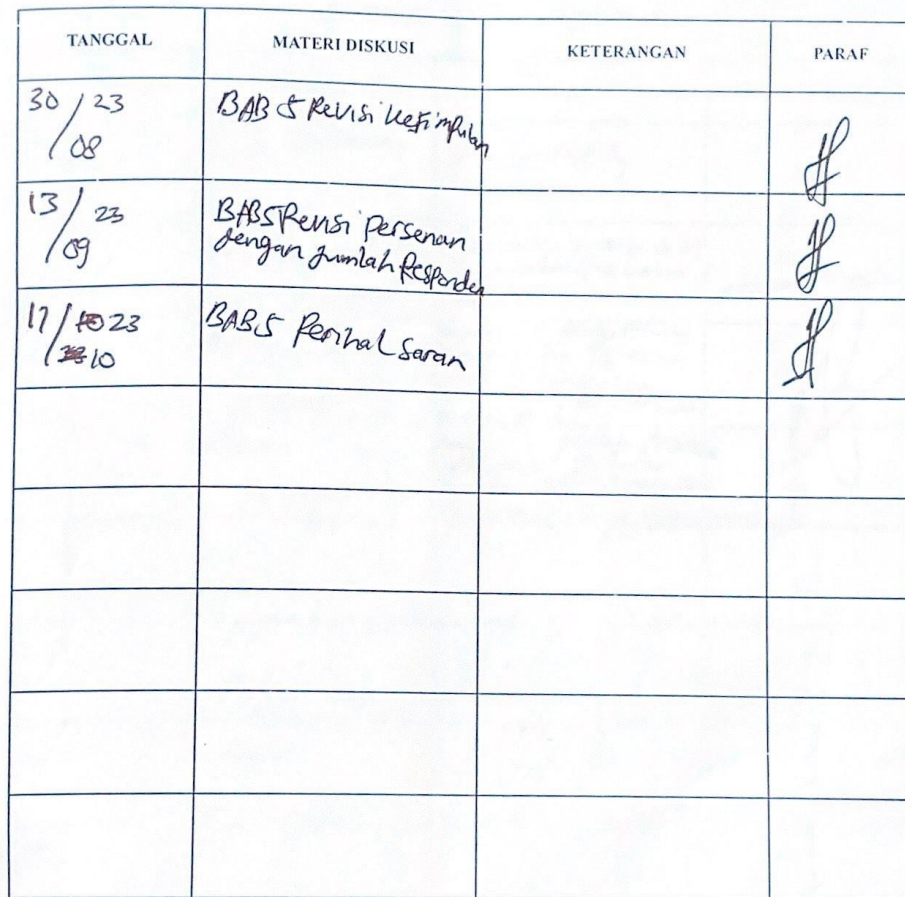 TANGGAL MATERI DISKUSI KETERANGAN PARAF
30 / 23 BAB 5 Revisi kesimpulan
08
13 / 23 BAB 5 Revisi Persenan
09 dengan jumlah Responden
17 / 23 BAB 5 Perihal Saran
10